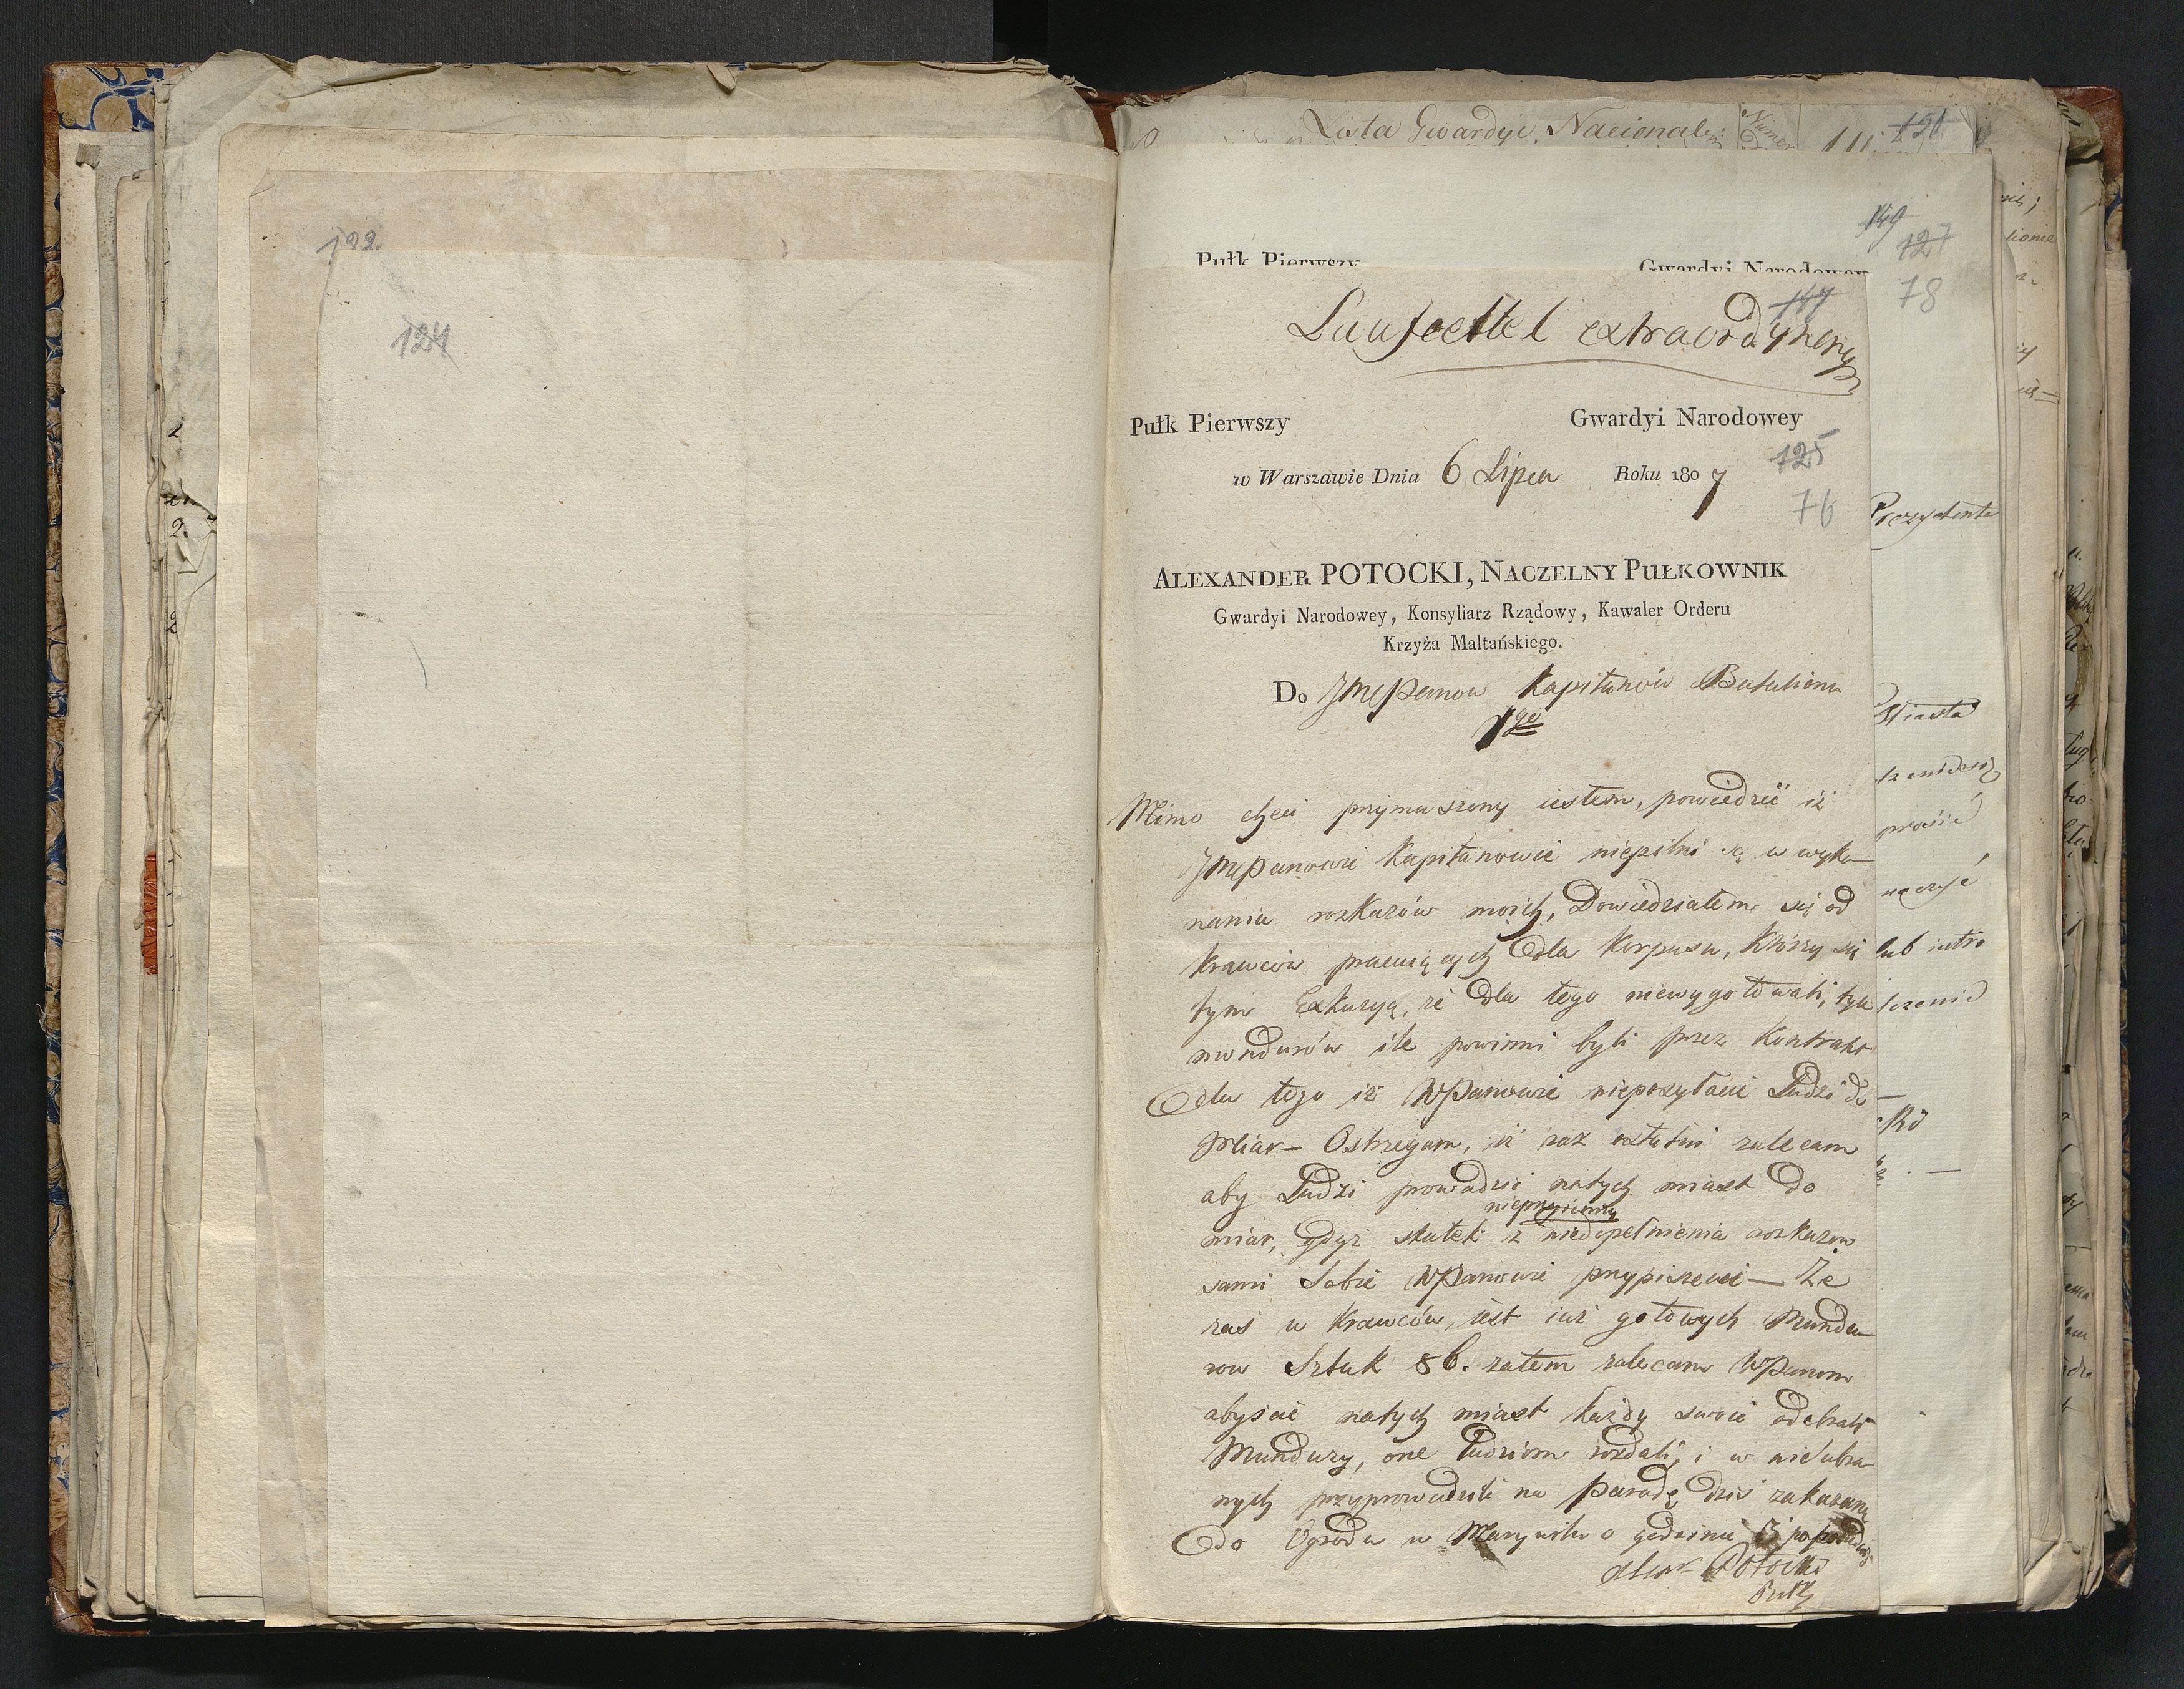 122.
124
Lista Gwardyi Nacionalney
121
149
127
78
Pułk Pierwszy Gwardyi Narodowey
147
Laufcettel extraordynaryi
Pułk Pierwszy Gwardyi Narodowey
125
w Warszawie Dnia 6 Lipca Roku 1807
76
ALEXANDER POTOCKI, NACZELNY PUŁKOWNIK
Gwardyi Narodowey, Konsyliarz Rządowy, Kawaler Orderu
Krzyża Maltańskiego.
Do Jmcpanow Kapitanów Batalionu
1go
Mimo chęci przymuszony iestem, powiedzieć iż
Jmcpanowie Kapitanowie niepilni są w wyko-
naniu rozkazów moich, Dowiedziałem się od
Krawców pracuiących dla Korpusu, Którzy się
tym Exkuzyą, że dla tego niewygotowali, tyle
mundurów ile powinni byli przez Kontrakt
dla tego iż WPanowie nieposyłacie Ludzi do
Miar - Ostrzegam, iż raz ostatni zalecam
aby Ludzi prowadzić natych miast do
nieprzyiemny
miar, gdyż skutek z niedopełnienia rozkazow
sami Sobie WPanowie przypiszecie — Że
zaś u Krawców, iest iuż gotowych Mundu-
row Sztuk 86. zatem zalecam WPanom
abyście natych miast każdy swoie odebrali
Mundury, one ludziom rozdali, i w nie ubra-
nych przyprowadzili na paradę dziś zakazaną
do Ogrodu w Marywilu o godzinie 5 po południu
Alexr Potocki
Pułk
Prezydenta
Miasta
prosić
naczyć
lub iutro